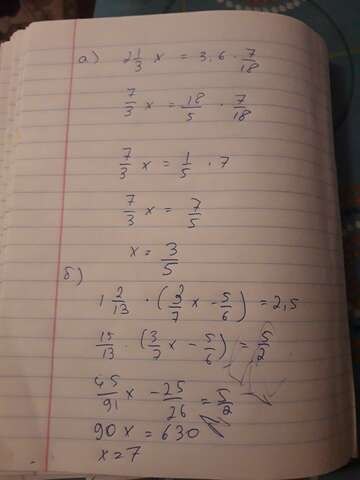 а) 2 1/3 x = 3,6 · 7/18
7/3 x = 18/5 · 7/18
7/3 x = 1/5 · 7
7/3 x = 7/5
x = 3/5
б)
1 2/13 · (3/7 x - 5/6) = 2,5
15/13 · (3/7 x - 5/6) = 5/2
45/91 x - 25/26 = 5/2
90x = 630
x = 7